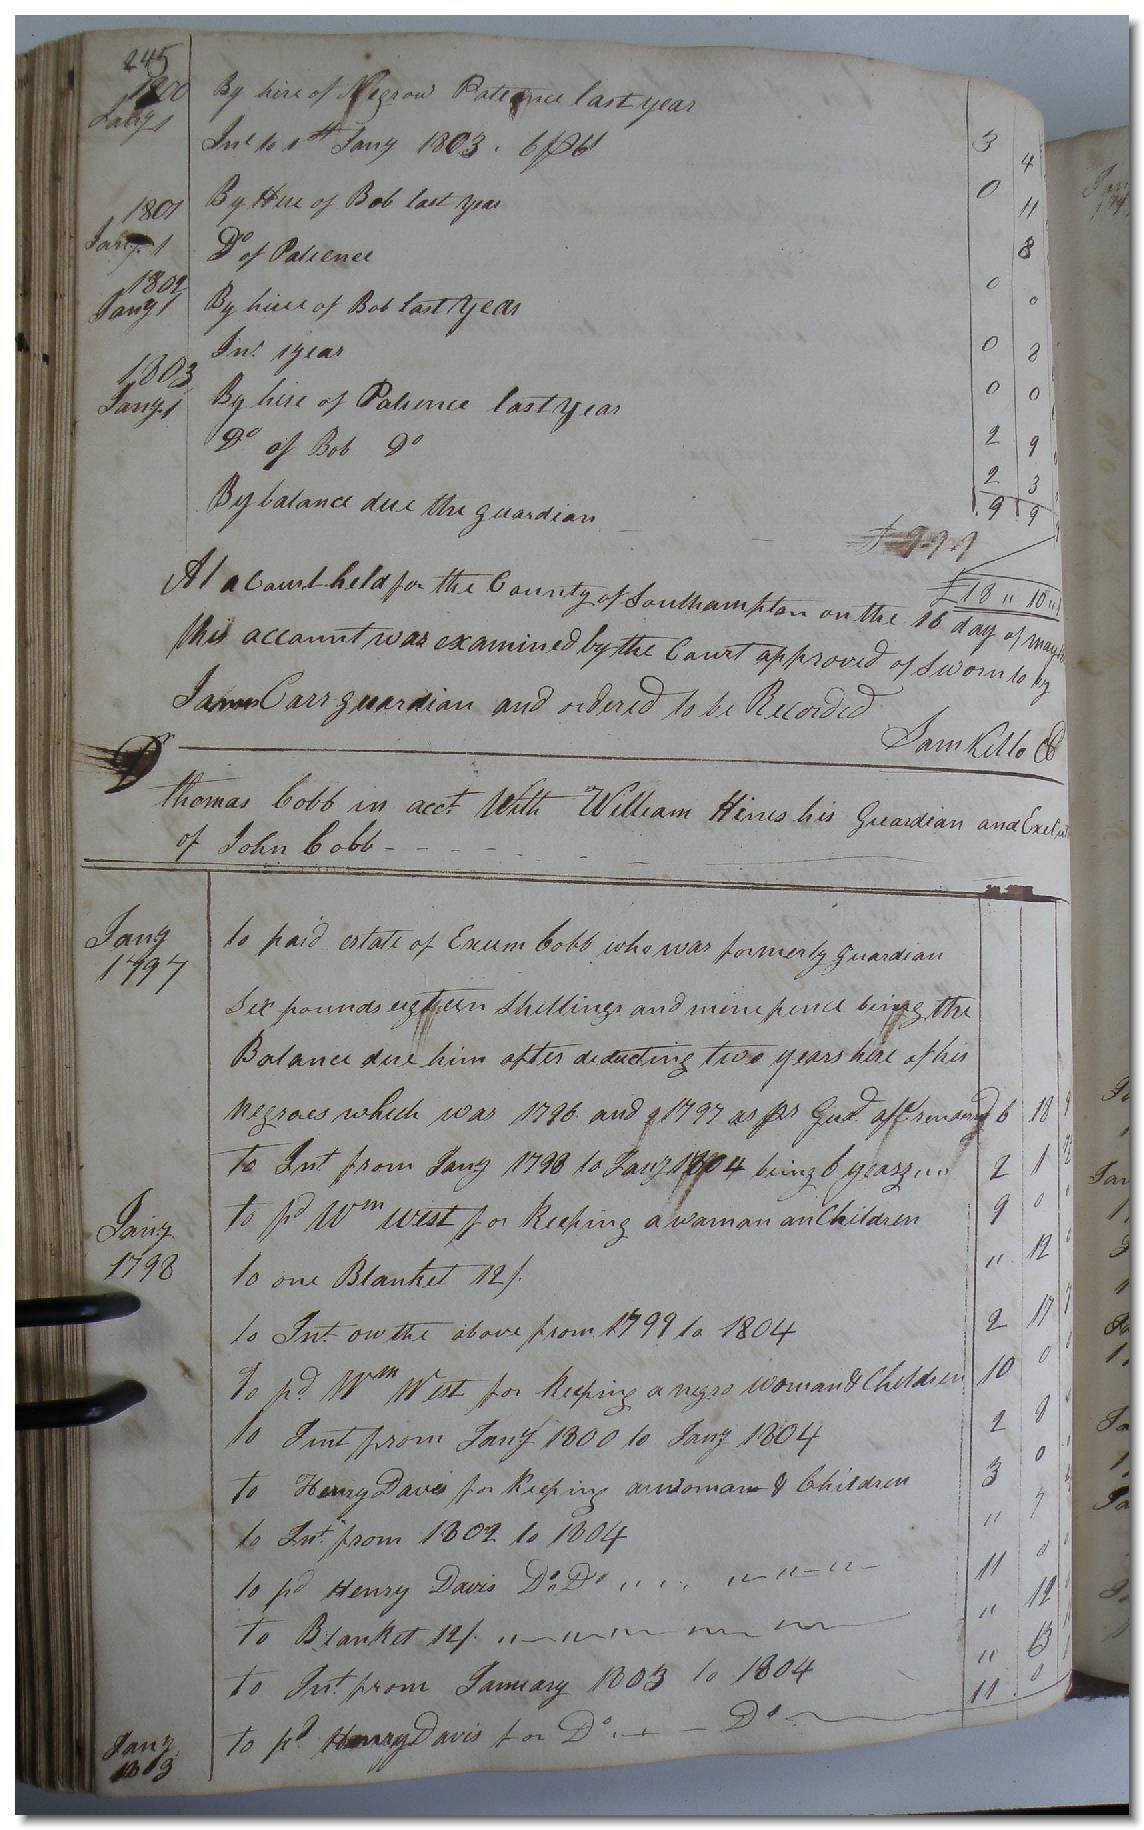 245
1800 By hire of Negrow Patience last year
Jany 1
Int to 1st Jany 1803. 6 p Ct 3 4
1801 By Hire of Bob last year 0 11
Jany 1 Do of Patience 8
1802
Jany 1 By hire of Bob last year 0 0
Int 1 year 0 2
1803
Jany 1 By hire of Patience last year 0 0
Do of Bob Do 2 9
By balance due the guardian 2 3
9 9
£ 9-9-9
£18 " 10 "
At a Court held for the County of Southampton on the 16 day of may
this account was examined by the Court approved of Sworn to by
James Carr guardian and ordered to be Recorded
Sam Kello
Dr
thomas Cobb in acct With William Hines his Guardian and
of John Cobb
Jany
1797 to paid estate of Exum Cobb who was formerly guardian
Six pounds eighteen Shellings and nine pence being the
Balance due him after deducting two years hire of his
negroes which was 1796 and 1797 as pr Gud. 6 18 9
to Int from Jany 1798 to Jany 1804 being 6 years 2 1
Jany to pd Wm West for Keeping a woman an Children 9 0
1798 to one Blanket 12/. " 12
to Int on the above from 1799 to 1804 2 17
To pd Wm West for Keeping a negro woman & Children 10 0
to Innt from Jany 1800 to Jany 1804 2 8
to Henry Davis for Keeping woman & Children 3 0
to Int from 1802 to 1804 " 7
to pd Henry Davis Do Do 11 0
To Blanket 12/. " 12
to Int from January 1803 to 1804 " 13
Jany to pd Henry Davis for Do Do 11 0
1803